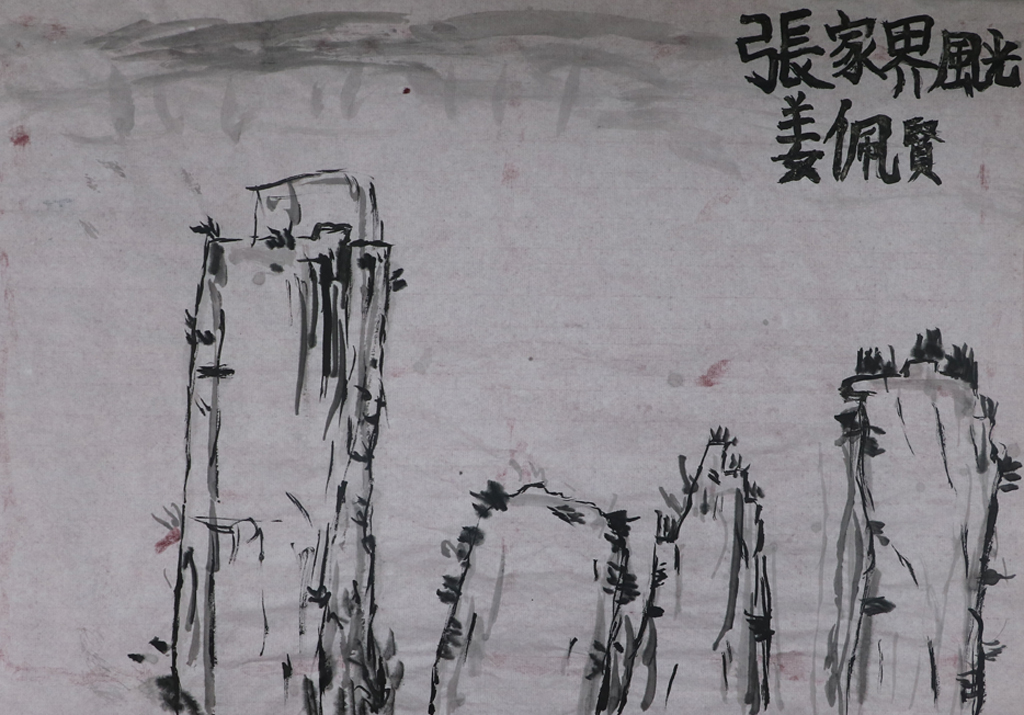 張家界風光
姜佩賢